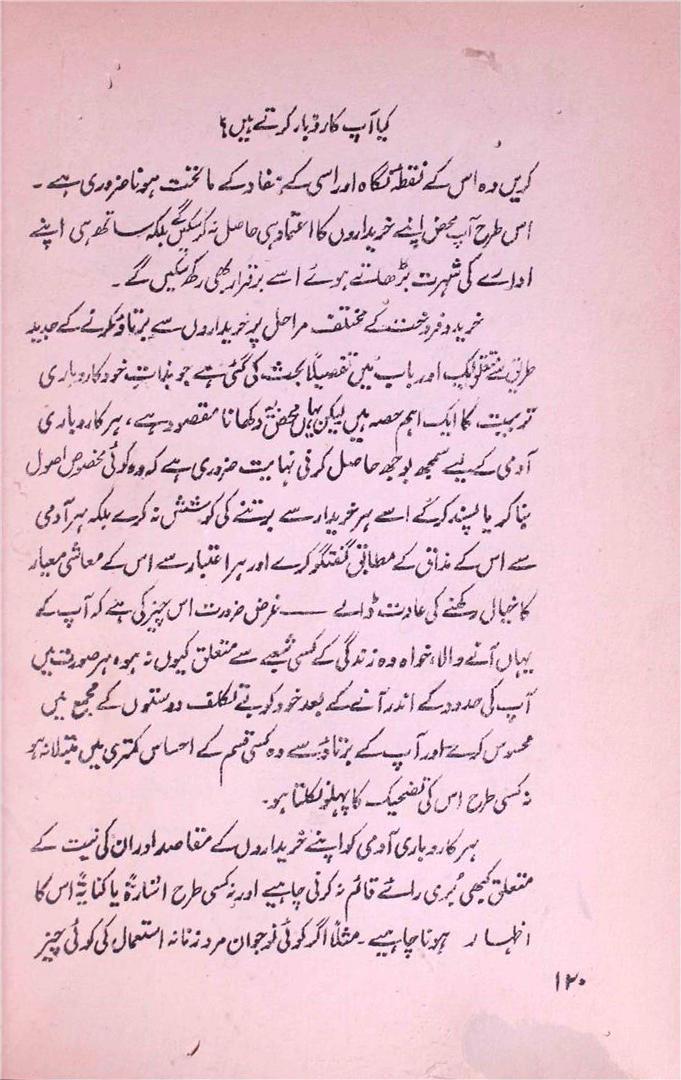 کیا آپ کاروبار کرتے ہیں؟
کریں وہ اس کے نقطۂ نگاہ اور اسی کے مفاد کے ماتحت ہونا ضروری ہے۔
اس طرح آپ محض اپنے خریداروں کا اعتماد ہی حاصل نہ کر سکیں گے بلکہ ساتھ ہی اپنے
ادارے کی شہرت بڑھاتے ہوئے اسے برقرار بھی رکھ سکیں گے۔
خرید و فروخت کے مختلف مراحل پر خریداروں سے برتاؤ کرنے کے جدید
طریق سے متعلق ایک اور باب میں تفصیلاً بحث کی گئی ہے جو بذاتِ خود کاروباری
تربیت کا ایک اہم حصہ ہیں لیکن یہاں محض یہ دکھانا مقصود ہے، ہر کاروباری
آدمی کے لیے سمجھ بوجھ حاصل کرنی نہایت ضروری ہے کہ وہ کوئی مخصوص اصول
بنا کر یا پسند کر کے اسے ہر خریدار سے برتنے کی کوشش نہ کرے بلکہ ہر آدمی
سے اس کے مذاق کے مطابق گفتگو کرے اور ہر اعتبار سے اس کے معاشی معیار
کا خیال رکھنے کی عادت ڈالے —— غرض ضرورت اس چیز کی ہے کہ آپ کے
یہاں آنے والا، خواہ وہ زندگی کے کسی شعبے سے متعلق کیوں نہ ہو، ہر صورت میں
آپ کی حدود کے اندر آنے کے بعد خود کو بے تکلف دوستوں کے مجمع میں
محسوس کرے اور آپ کے برتاؤ سے وہ کسی قسم کے احساس کمتری میں مبتلا نہ ہو
نہ کسی طرح اس کی تضحیک کا پہلو نکلتا ہو۔
ہر کاروباری آدمی کو اپنے خریداروں کے مقاصد اور ان کی نیت کے
متعلق کبھی بُری رائے قائم نہ کرنی چاہیے اور نہ کسی طرح اشارۃً یا کنایۃً اس کا
اظہار ہونا چاہیے۔ مثلاً اگر کوئی نوجوان مرد زنانہ استعمال کی کوئی چیز
۱۲۰